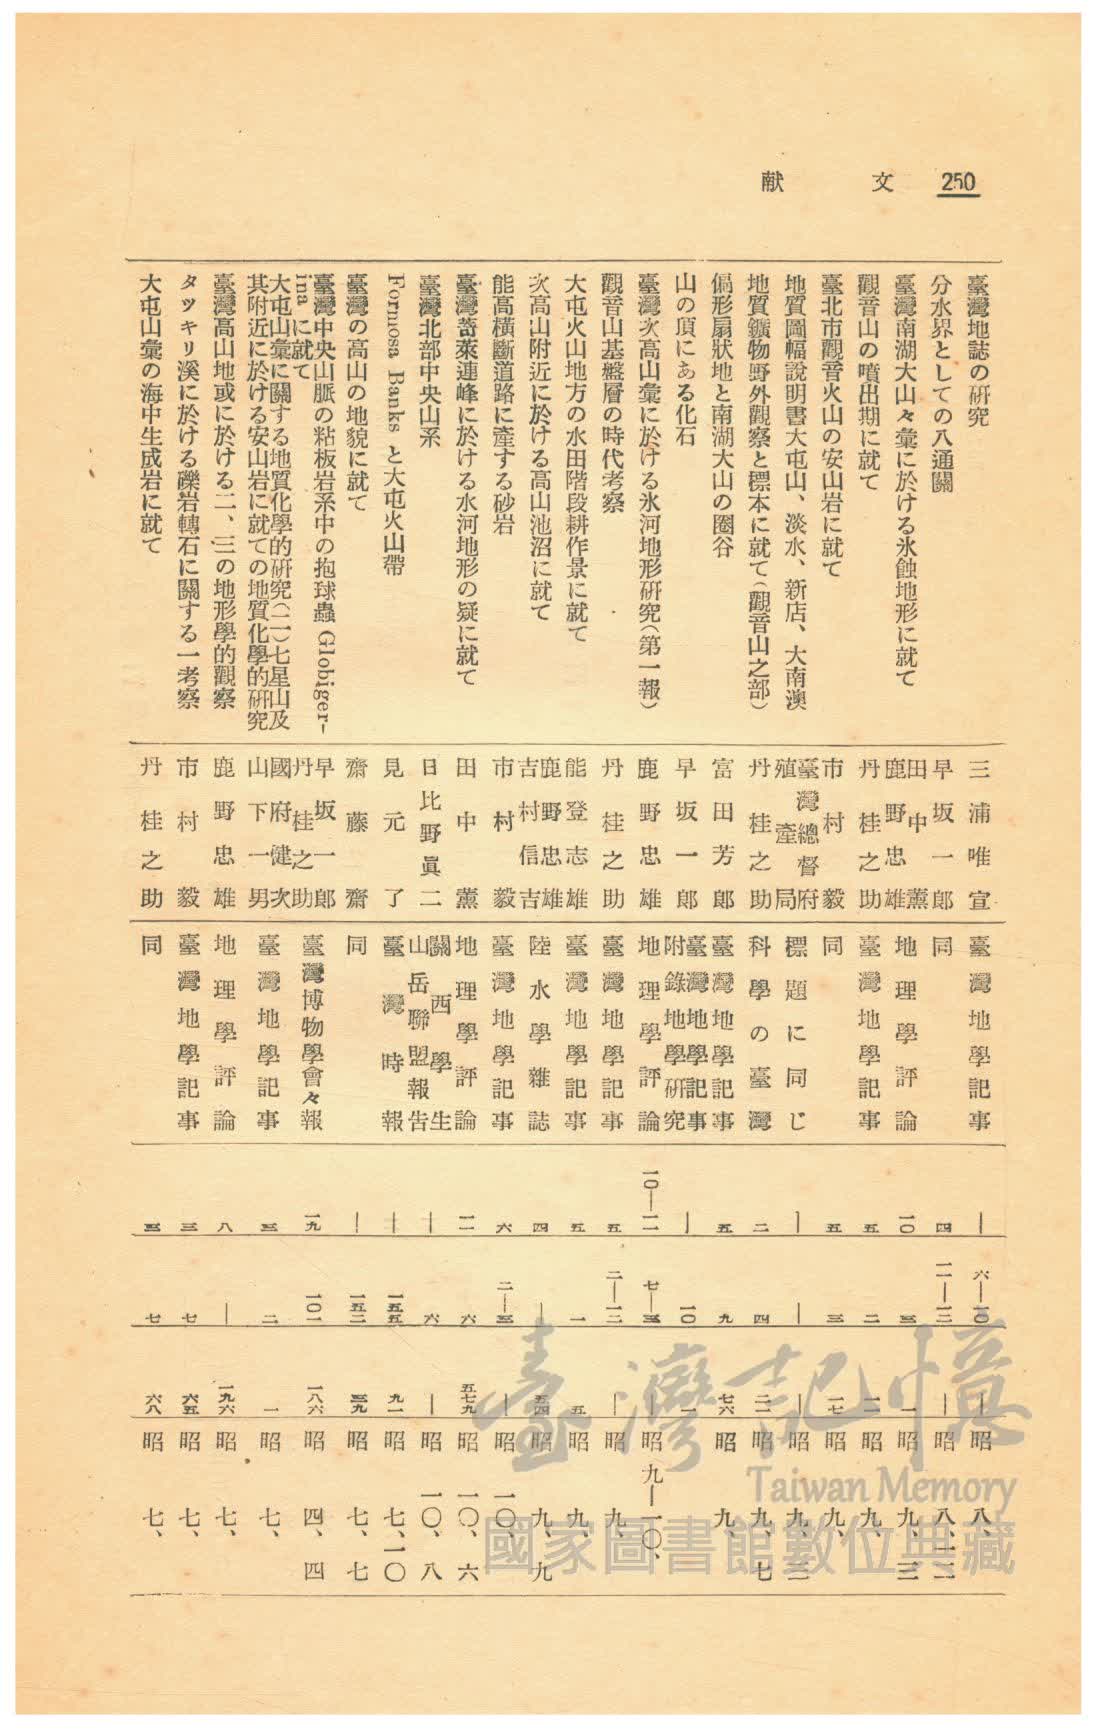 250 文献
臺灣地誌の研究 三浦唯宣 臺灣地學記事 — 六—一〇 — 昭 八、
分水界としての八通關 早坂一郎 同 四 一一—一二 — 昭 八、一二
臺灣南湖大山々彙に於ける氷蝕地形に就て 田中薫 鹿野忠雄 地理學評論 一〇 三 一 昭 九、三
觀音山の噴出期に就て 丹桂之助 臺灣地學記事 五 二 一一 昭 九、
臺北市觀音火山の安山岩に就て 市村毅 同 五 三 一七 昭 九、
地質圖幅說明書大屯山、淡水、新店、大南澳 臺灣總督府殖產局 標題に同じ — — — 昭 九、三
地質鑛物野外觀察と標本に就て(觀音山之部) 丹桂之助 科學の臺灣 二 四 二一 昭 九、七
偏形扇狀地と南湖大山の圈谷 富田芳郎 臺灣地學記事 五 九 七六 昭 九、
山の頂にある化石 早坂一郎 臺灣地學記事附錄地學研究 — 一〇 一
臺灣次高山彙に於ける氷河地形研究(第一報) 鹿野忠雄 地理學評論 一〇—一一 七—三 — 昭 九—一〇、
觀音山基盤層の時代考察 丹桂之助 臺灣地學記事 五 二—一二 — 昭 九、
大屯火山地方の水田階段耕作景に就て 能登志雄 臺灣地學記事 五 一 五 昭 九、
次高山附近に於ける高山池沼に就て 鹿野忠雄 吉村信吉 陸水學雜誌 四 — 五四 昭 九、九
能高橫斷道路に產する砂岩 市村毅 臺灣地學記事 六 二—三 — 昭 一〇、
臺灣奇萊連峰に於ける氷河地形の疑に就て 田中薫 地理學評論 一一 六 五七九 昭 一〇、六
臺灣北部中央山系 日比野眞二 關西學生山岳聯盟報告 — 六 — 昭 一〇、八
Formosa Banks と大屯火山帶 見元了 臺灣時報 — 一五五 九一 昭 七、一〇
臺灣の高山の地貌に就て 齋藤齋 同 — 一五二 三九 昭 七、七
臺灣中央山脈の粘板岩系中の抱球蟲 Globiger-
ina に就て 早坂一郎 丹桂之助 臺灣博物學會々報 一九 一〇一 一八六 昭 四、四
大屯山彙に關する地質化學的硏究(二)七星山及
其附近に於ける安山岩に就ての地質化學的硏究 國府健次 山下一男 臺灣地學記事 三 二 一 昭 七、
臺灣高山地域に於ける二、三の地形學的觀察 鹿野忠雄 地理學評論 八 — 一九六 昭 七、
タツキリ溪に於ける礫岩轉石に關する一考察 市村毅 臺灣地學記事 三 七 六五 昭 七、
大屯山彙の海中生成岩に就て 丹桂之助 同 三 七 六八 昭 七、
臺灣記憶
Taiwan Memory
國家圖書館數位典藏